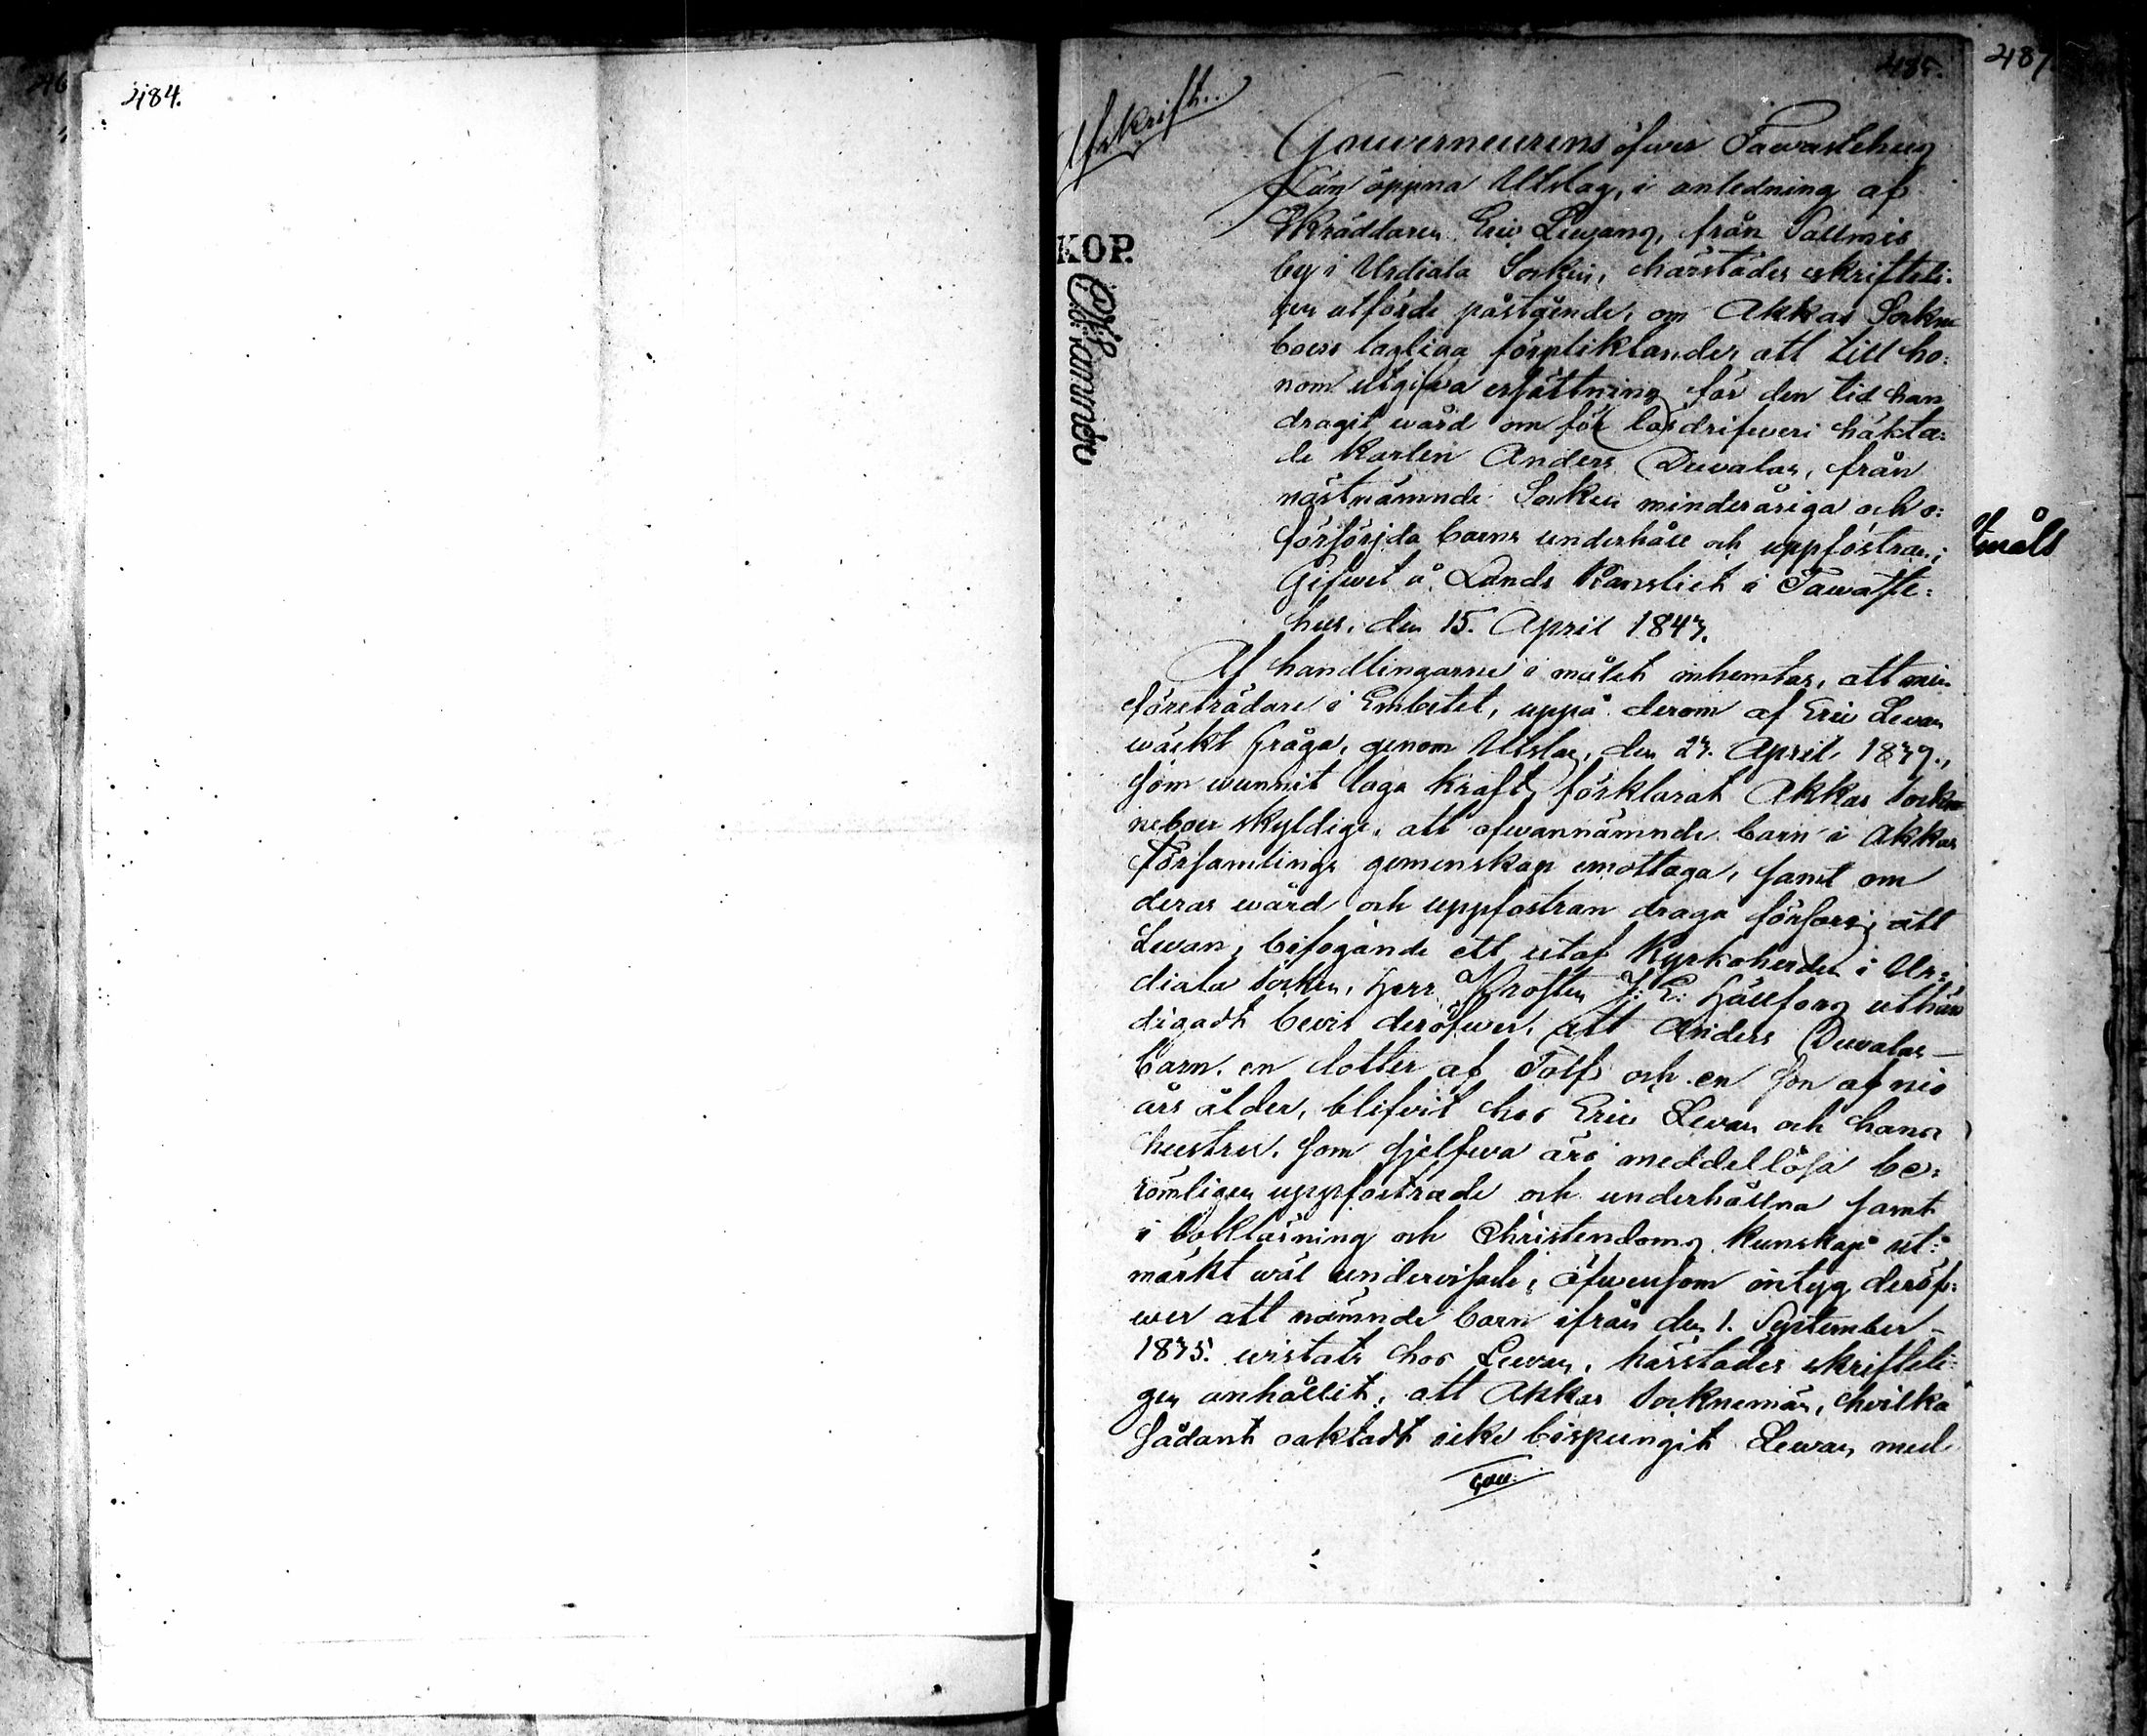 484.
485.
487
Afskrift..
KOP.
Gouverneurens öfwer Tawastehus
Län öppna Utslag, i anledning af
Skräddaren Eric Lewans, från
by i Urdiala Sockn, härstädes skrifteli-
gen utförde påstående, om Akkas Sockne
boers lagliga förpliktander att till ho:
nom utgifwa ersättning för den tid han
dragit wård om för lösdrifweri häkta:
de Karlen Anders Duvalas, från
nästnämnde Socken minderåriga och o:
försörjda barns underhåll och uppfostran;
Gifwet å Lands Kansliet i Tawaste:
hus, den 15. April 1847.
Af handlingarne i målet inhemtas, att min
företrädare i Embetet, uppå derom af Eric Lewan
wäckt fråga, genom Utslag, den 27. April 1839.,
som wunnit laga kraft, förklarat Akkas Sock
neboer skyldige, att ofwannämnde barn i Akkas
Församlings gemenskap emottaga, samt om
deras wård och uppfostran draga försorg; att
Lewan, bifogande ett utaf Kyrkoherden i Ur:
diala Socken, Herr Prosten J: E: Hällfors uthän
digadt bevis deröfwer, att Anders Duvalas –
barn, en dotter af Tolf och en son af nio
års ålder, blifwit hos Eric Lewan och hans
hustru, som sjelfwa äro meddellösa be:
römligen uppfostrade och underhållna samt
i bokläsning och Christendoms kunskap ut:
märkt wäl underwisade; äfwensom intyg deröf:
wer att nämnde barn ifrån den 1. September –
1835. wistats hos Lewan, härstädes skriftli:
gen anhållit; att Akkas Socknemän, hwilka
sådant oaktadt icke bisprungit Lewan med
måls